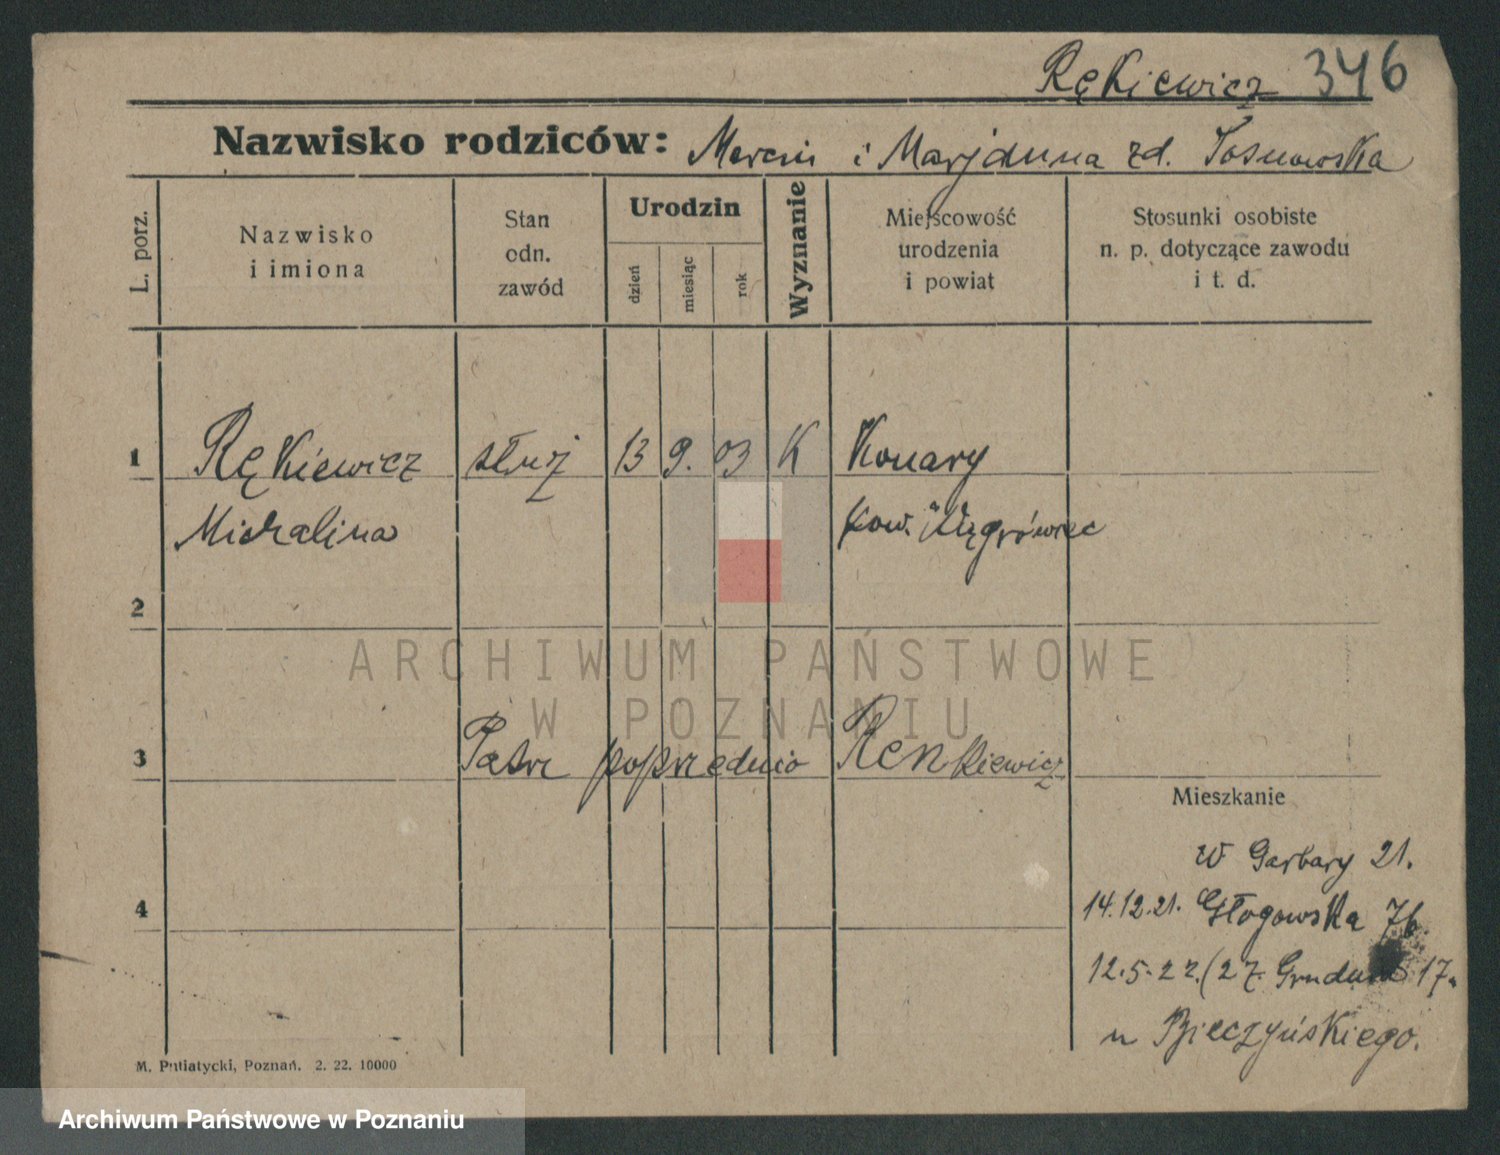 Rękiewicz 346
Nazwisko rodziców: Marcin i Marjanna zd. Sosnowska
L. porz.
Nazwisko i imiona
Stan odn. zawód
Urodzin
dzień
miesiąc
rok
Wyznanie
Miejscowość urodzenia i powiat
Stosunki osobiste n. p. dotyczące zawodu i t. d.
1 Rękiewicz służ 13 9. 03 K Konary
Michalina pow. Wągrówiec
2
ARCHIWUM PAŃSTWOWE
W POZNANIU
3 Patrz poprzednio Renkiewicz
Mieszkanie
W Garbary 21.
4 14.12.21. Głogowska 76.
12.5.22. (27. Grudnia 17.
u Bieczyńskiego.
M. Putiatycki, Poznań. 2. 22. 10000
Archiwum Państwowe w Poznaniu